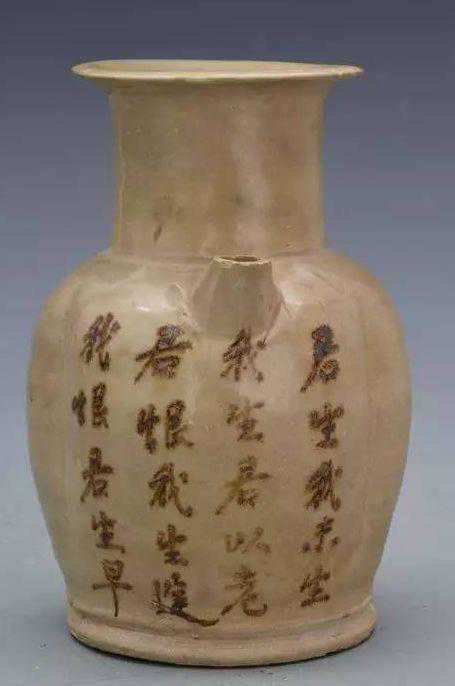 君生我未生
我生君以老
君恨我生遲
我恨君生早